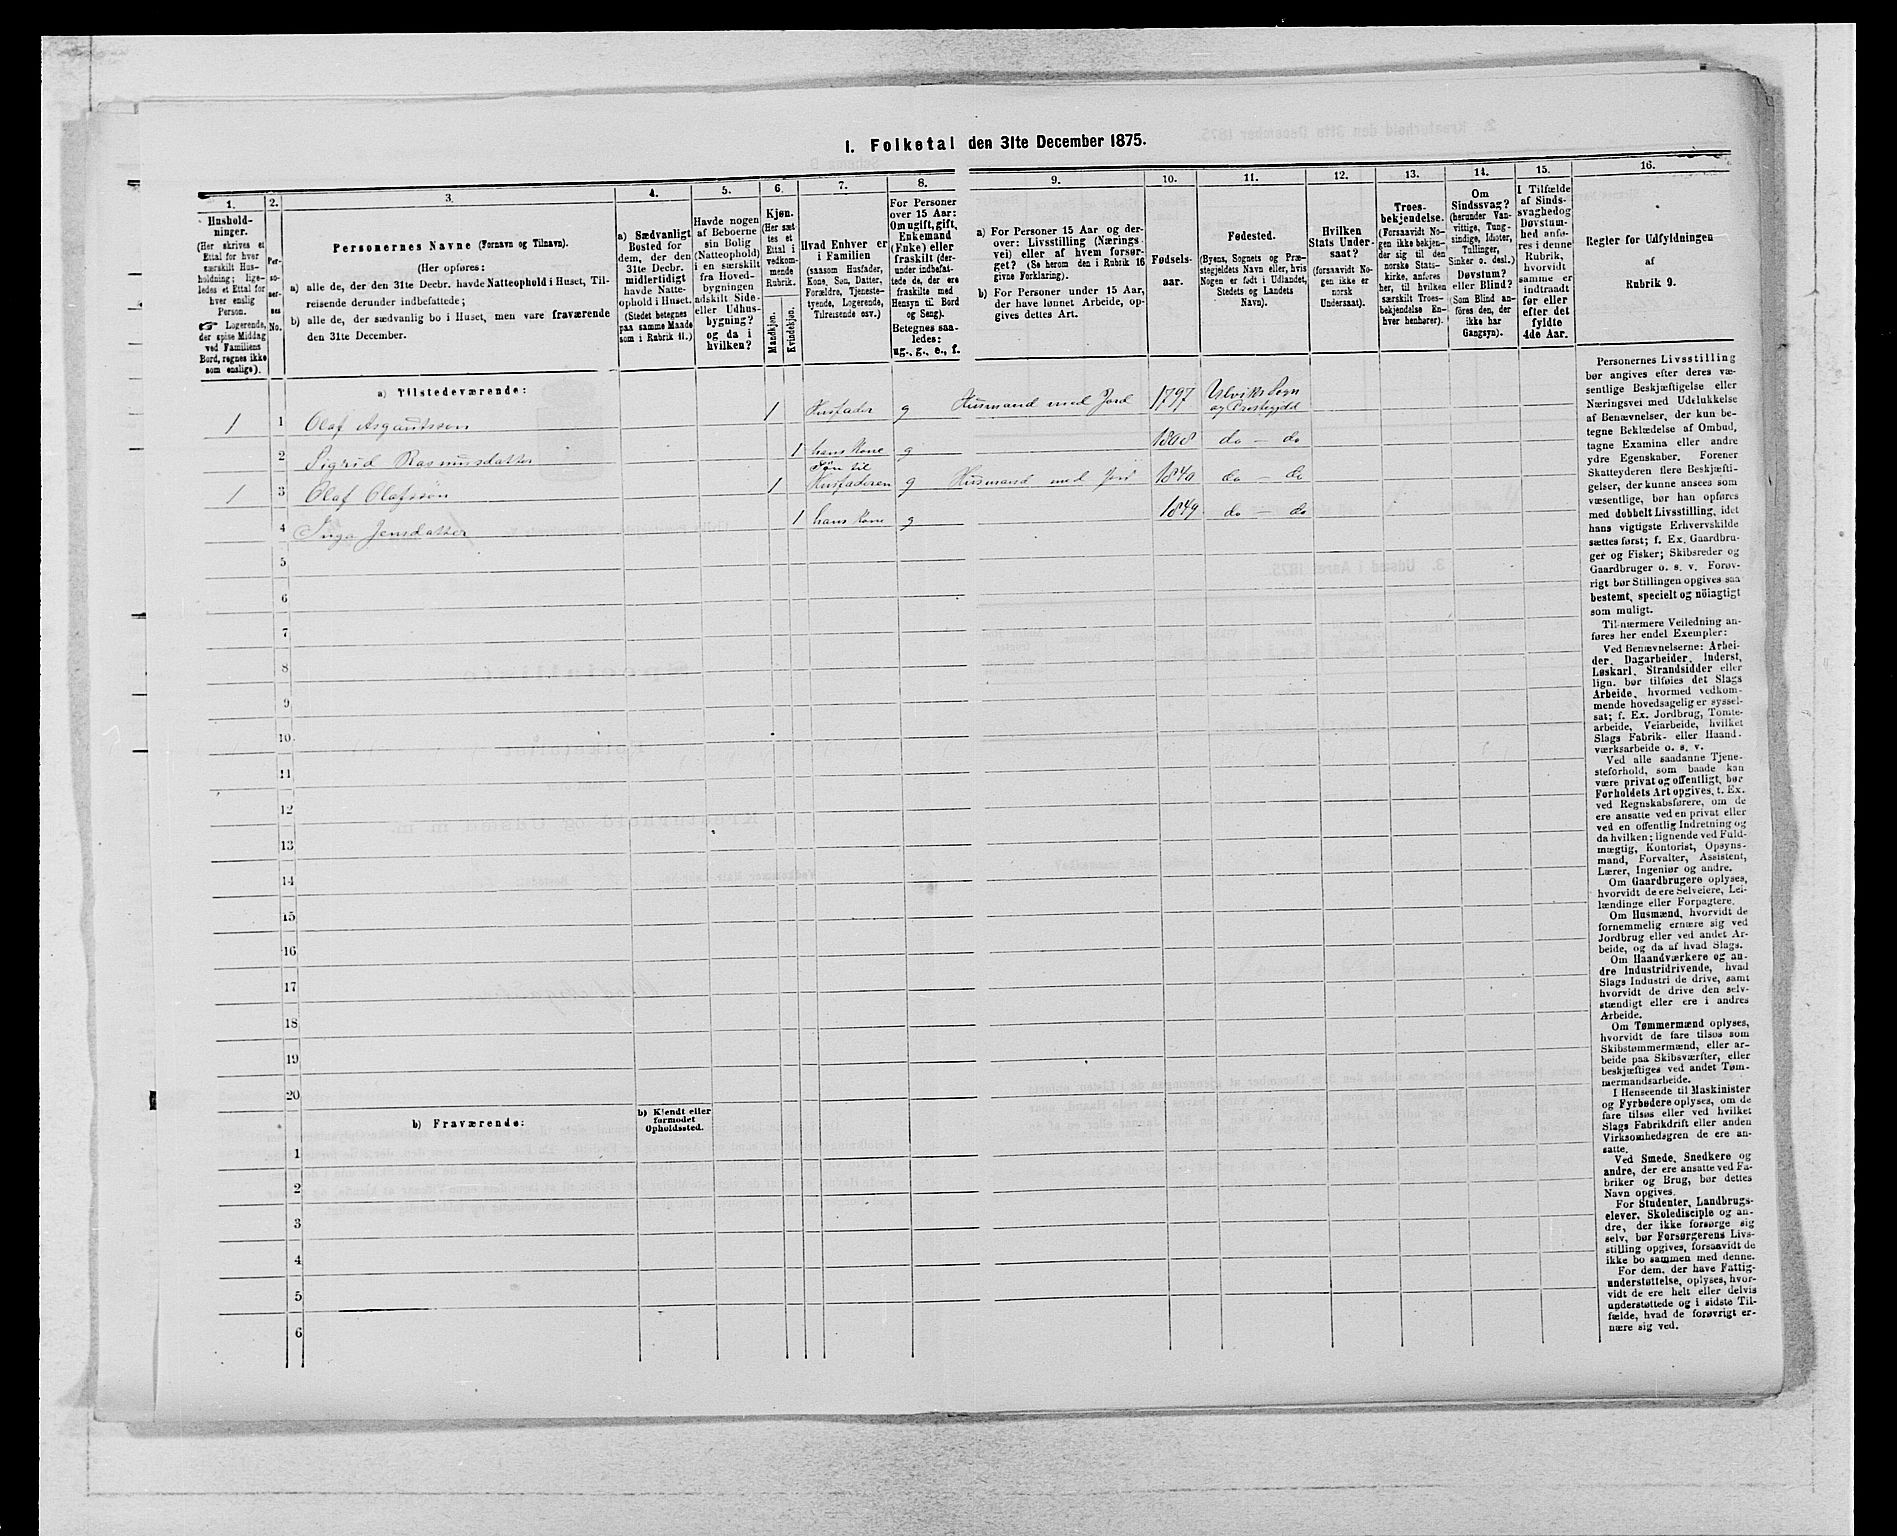 1. Folketal den 31te December 1875.
1.
Hushold-
ninger.
(Her skrives et
Ettal for hver
særskilt Hus-
holdning; lige-
ledes et Ettal for
hver enslig
Person.
☞ Logerende,
der spise Middag
ved Familiens
Bord, regnes ikke
som enslige).
2.
Per-
so-
ner-
nes
No.
3.
Personernes Navne (Fornavn og Tilnavn).
(Her opføres:
a) alle de, der den 31te Decbr. havde Natteophold i Huset, Til-
reisende derunder indbefattede;
b) alle de, der sædvanlig bo i Huset, men vare fraværende
den 31te December.
4.
a) Sædvanligt
Bosted for
dem, der den
31te Decbr.
midlertidigt
havde Natte-
ophold i Huset.
(Stedet betegnes
paa samme Maade
som i Rubrik 11.)
5.
Havde nogen
af Beboerne
sin Bolig
(Natteophold)
i en særskilt
fra Hoved-
bygningen
adskilt Side-
eller Udhus-
bygning?
og da i
hvilken?
6.
Kjøn.
(Her sæt
tes et
Ettal i
vedkom-
mende
Rubrik.
Mandkjøn.
Kvindekjøn.
7.
Hvad Enhver er
i Familien
(saasom Husfader,
Kone, Søn, Datter,
Forældre, Tjeneste-
tyende, Logerende,
Tilreisende osv.)
8.
For Personer
over 15 Aar:
Om ugift, gift,
Enkemand
(Enke) eller
fraskilt (der-
under indbefat-
tede de, der ere
fraskilte med
Hensyn til Bord
og Seng).
Betegnes saa-
ledes:
ug., g., e., f.
9.
a) For Personer 15 Aar og der-
over: Livsstilling (Nærings-
vei) eller af hvem forsør-
get? (Se herom den i Rubrik 16
givne Forklaring).
b) For Personer under 15 Aar,
der have lønnet Arbeide, op-
gives dettes Art.
10.
Fødsels-
aar.
11.
Fødested.
(Byens, Sognets og Præ-
stegjeldets Navn eller, hvis
Nogen er født i Udlandet,
Stedets og Landets
Navn).
12.
Hvilken
Stats Under-
saat?
(forsaavidt No-
gen ikke er
norsk
Undersaat).
13.
Troes-
bekjendelse.
(Forsaavidt No-
gen ikke bekjen-
der sig til den
norske Stats-
kirke, anføres
her, til hvilken
særskilt Troes-
bekjendelse En-
hver henhører).
14.
Om
Sindssvag?
(herunder Van-
vittige, Tung-
sindige, Idioter,
Tullinger,
Sinker o. desl.)
Døvstum?
eller Blind?
(Som Blind an-
føres den, der
ikke har
Gangsyn).
15.
I Tilfælde
af Sinds-
svaghed og
Døvstum-
hed anfø-
res i denne
Rubrik,
hvorvidt
samme er
indtraadt
før eller
efter det
fyldte
4de Aar.
16.
Regler for Udfyldningen
af
Rubrik 9.
a) Tilstedeværende:
1 1 Olaf Asgautssøn 1 Husfader g Husmand med Jord 1797 Ulviks Sogn
og Præstegjeld
2 Sigrid Rasmusdatter 1 hans Kone g 1808 do — do
1 3 Olaf Olafssøn 1 Søn til
Husfaderen g Husmand med Jord 1840 do — do
4 Inga Jensdatter 1 hans Kone g 1849 do — do
5
6
7
8
9
10
11
12
13
14
15
16
17
18
19
20
b) Fraværende:
b) Kjendt eller
formodet
Opholdssted.
1
2
3
4
5
6
Personernes Livsstilling
bør angives efter deres væ-
sentlige Beskjæftigelse eller
Næringsvei med Udelukkelse
af Benævnelser, der kun be-
tegne Beklædelse af Ombud,
tagne Examina eller andre
ydre Egenskaber. Forener
Skatteyderen flere Beskjæfti-
gelser, der kunne ansees som
væsentlige, bør han opføres
med dobbelt Livsstilling, idet
hans vigtigste Erhvervskilde
sættes først; f. Ex. Gaardbru-
ger og Fisker; Skibsreder og
Gaardbruger o. s. v. Forøv-
rigt bør Stillingen opgives saa
bestemt, specielt og nöiagtigt
som muligt.
Til nærmere Veiledning an-
føres her endel Exempler:
Ved Benævnelserne: Arbei-
der, Dagarbeider, Inderst,
Løskarl, Strandsidder eller
lign. bør tilføies det Slags
Arbeide, hvormed vedkom-
mende hovedsagelig er syssel-
sat; f. Ex. Jordbrug, Tomte-
arbeide, Veiarbeide, hvilket
Slags Fabrik- eller Haand-
værksarbeide o. s. v.
Ved alle saadanne Tjene-
steforhold, som baade kan
være privat og offentligt, bør
Forholdets Art opgives, t. Ex.
ved Regnskabsførere, om de
ere ansatte ved en privat eller
ved en offentlig Indretning og
da hvilken; lignende ved Fuld-
mægtig, Kontorist, Opsyns-
mand, Forvalter, Assistent,
Lærer, Ingeniør og andre.
Om Gaardbrugere oplyses,
hvorvidt de ere Selveiere, Lei-
lændinge eller Forpagtere.
Om Husmænd, hvorvidt de
fornemmelig ernære sig ved
Jordbrug eller ved andet Ar-
beide, og da af hvad Slags.
Om Haandværkere og an-
dre Industridrivende, hvad
Slags Industri de drive, samt
hvorvidt de drive den selv-
stændigt eller ere i andres
Arbeide.
Om Tømmermænd oplyses,
hvorvidt de fare tilsøs som
Skibstømmermænd, eller ar-
beide paa Skibsværfter, eller
beskjæftiges ved andet Tøm-
mermandsarbeide.
I Henseende til Maskinister
og Fyrbødere oplyses, om de
fare tilsøs eller ved hvilket
Slags Fabrikdrift eller anden
Virksomhedsgren de ere an-
satte.
Ved Smede, Snedkere og
andre, der ere ansatte ved Fa-
briker og Brug, bør dettes
Navn opgives.
For Studenter, Landbrugs-
elever, Skoledisciple og an-
dre, der ikke forsørge sig
selv, bør Forsørgerens Livs-
stilling opgives, forsaavidt de
ikke bo sammen med denne.
For dem, der have Fattig-
understøttelse, oplyses, hvor-
vidt de ere helt eller delvis
understøttede og i sidste Til-
fælde, hvad de forøvrigt er-
nære sig ved.